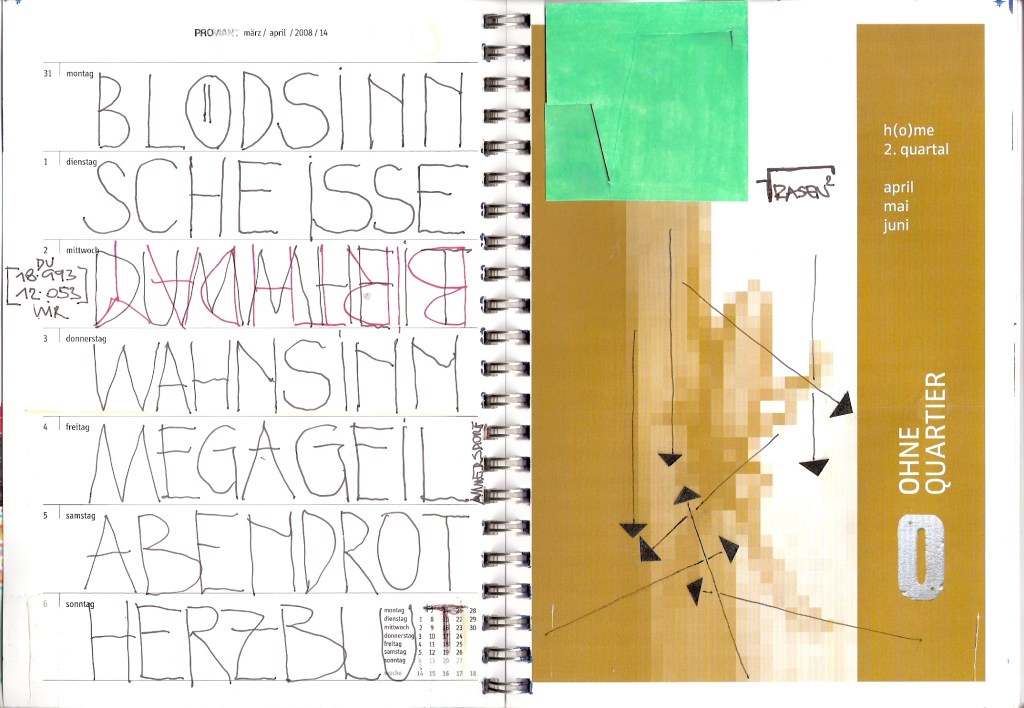 PROVIANT märz / april / 2008 / 14
31 montag
BLÖDSINN
1 dienstag
SCHEISSE
2 mittwoch
DU
18.993
12.053
WIR
3 donnerstag
WAHNSINN
4 freitag
MEGAGEIL
5 samstag
ABENDROT
6 sonntag
HERZBLUT
montag 28
dienstag 1 8 22 29
mittwoch 2 9 23 30
donnerstag 3 10 17 24
freitag 4 11 18 25
samstag 5 12 19 26
sonntag 6 13 20 27
woche 14 15 16 17 18
RASEN²
h(o)me
2. quartal
april
mai
juni
OHNE
QUARTIER
0